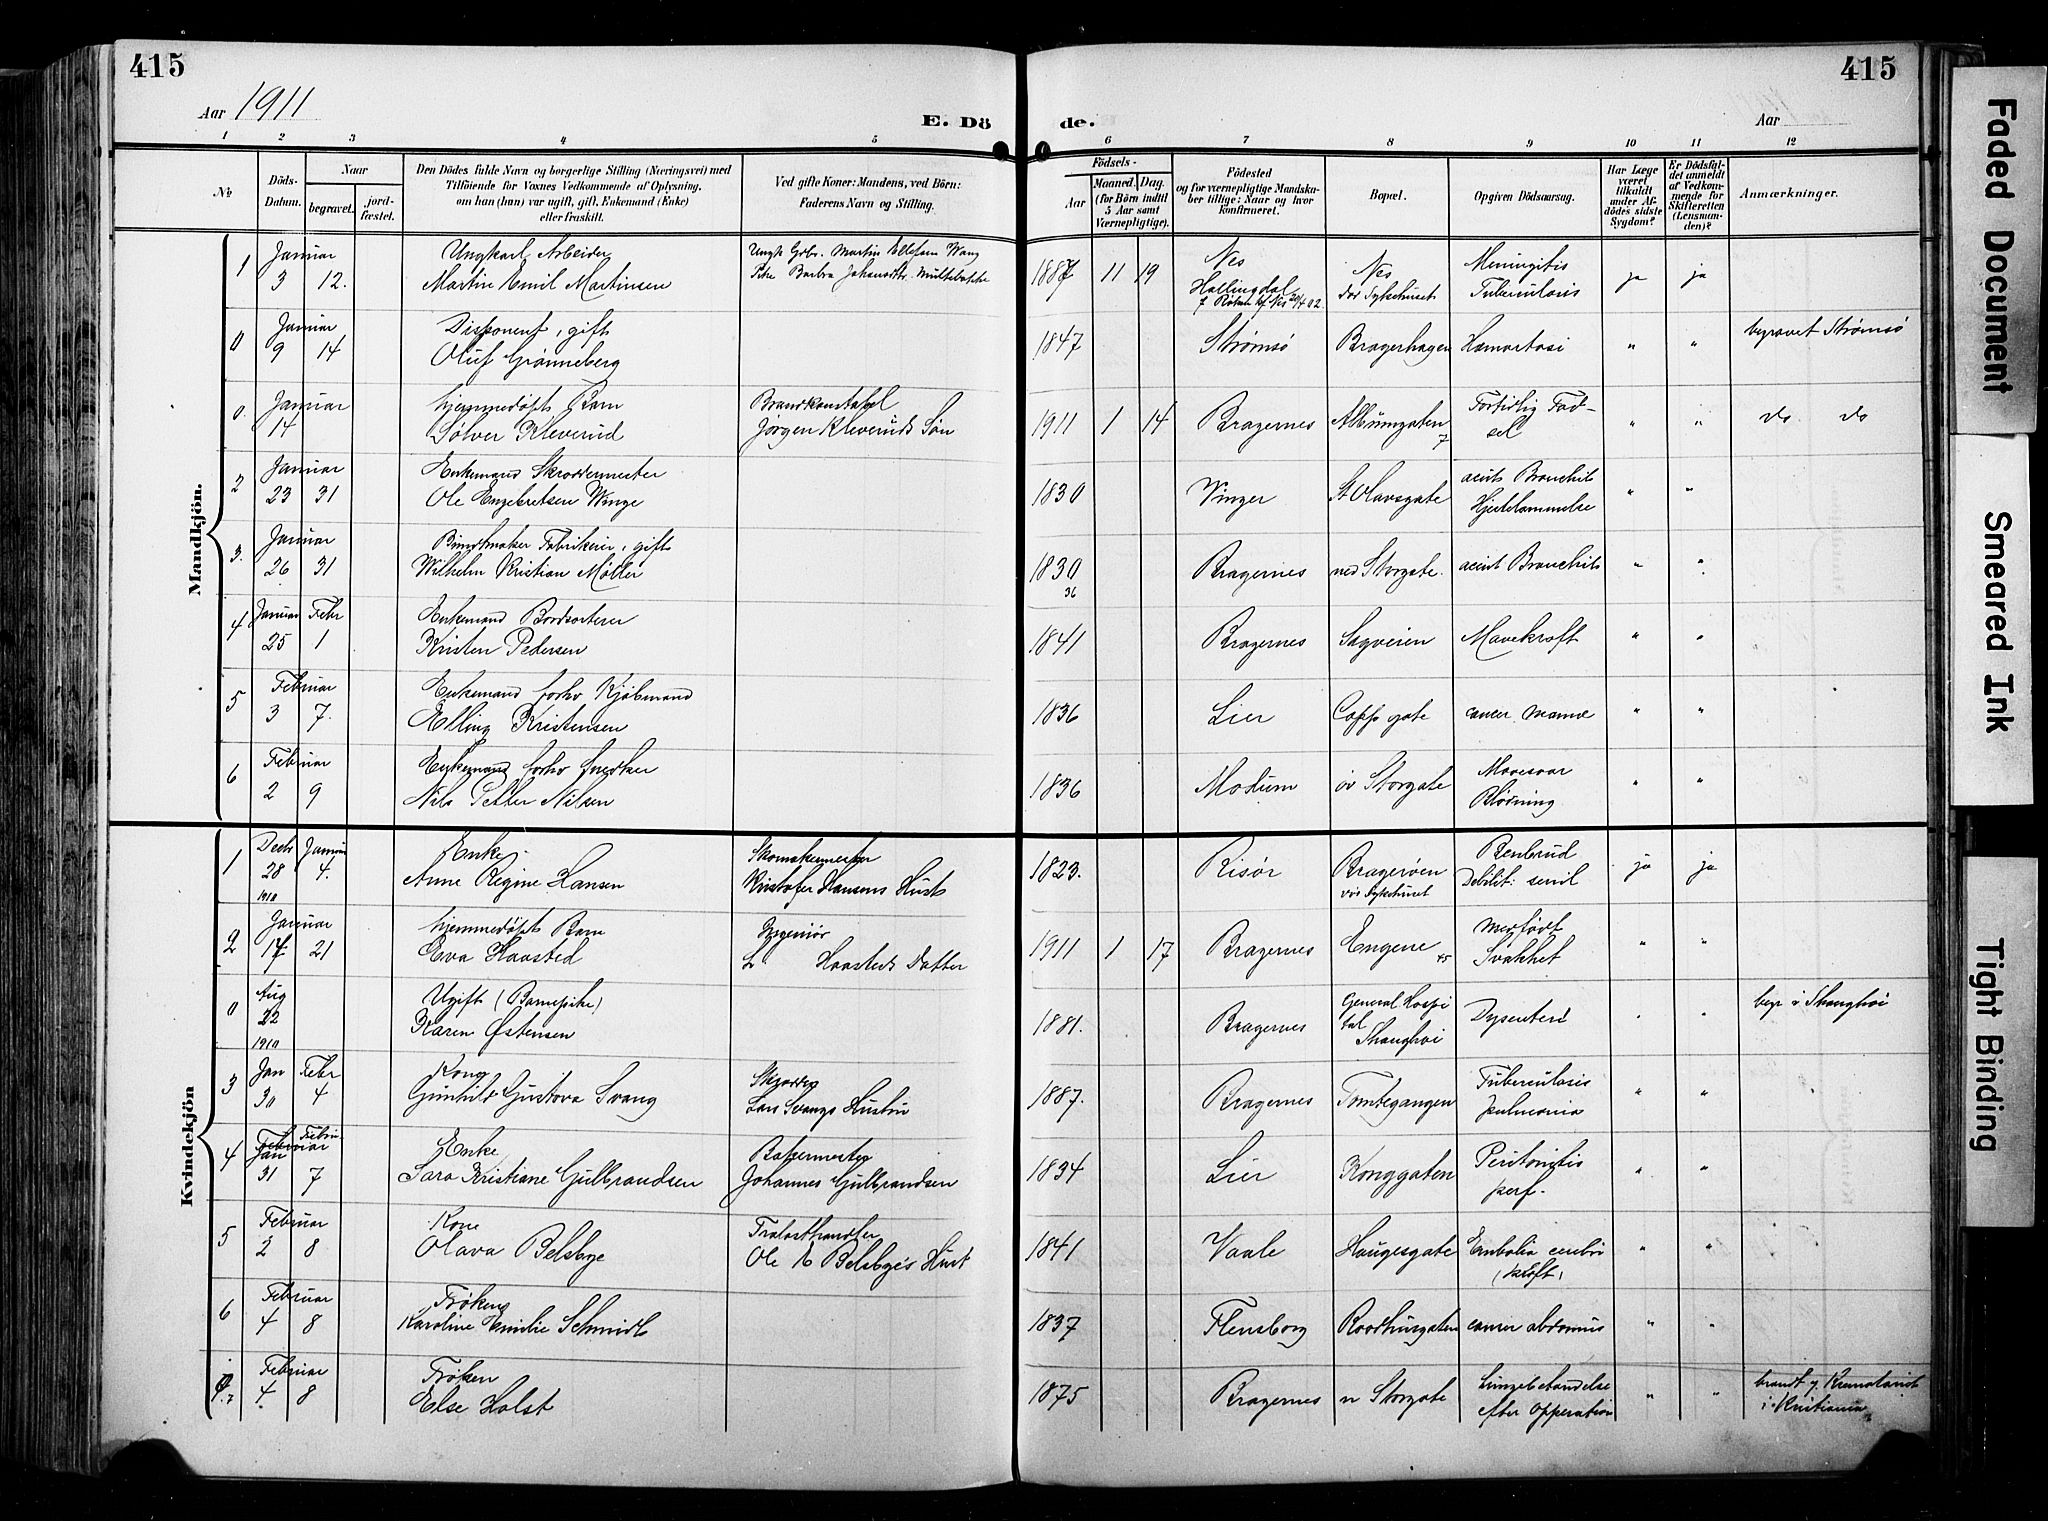 415
415
Aar 1911
E. Dö
de.
Aar
1 2 3 4 5 6 7 8 9 10 11 12
№
Döds-Datum.
Naar
begravet.
jord-fæstet.
Den Dödes fulde Navn og borgerlige Stilling (Næringsvei) med
Tilföiende for Voxnes Vedkommende af Oplysning,
om han (hun) var ugift, gift, Enkemand (Enke)
eller fraskilt.
Ved gifte Koner: Mandens, ved Börn:
Faderens Navn og Stilling.
Födsels-
Aar
Maaned. Dag.
(for Börn indtil
5 Aar samt
Værnepligtige).
Födested
og for værnepligtige Mandska-
ber tillige: Naar og hvor
konfirmeret.
Bopæl.
Opgiven Dödsaarsag.
Har Læge
været
tilkaldt
under Af-
dödes sidste
Sygdom?
Er Dödsfal-
det anmeldt
af Vedkom-
mende for
Skifteretten
(Lensman-
den)?
Anmærkninger.
Mandkjön.
1 Januar 3 12. Ungkarl, Arbeider
Martin Emil Martinsen
Ungk Gbr. Martin Ellefsen Wang
Pike Barbra Johansdtr.
1887 11 19 Nes
Hallingdal
Nes Sykehuset
Meningitis
Tuberculosis
ja ja
0 Januar 9 14 Disponent, gift
Oluf Grønneberg
1847 Strømsø Bragerhagen " " begravet Strømsø
0. Januar 14 hjemmedøpt Barn
Sølver Kleverud
Brandkonstabel
Jørgen Kleveruds Søn
1911 1 14 Bragernes Albumgaten 7 Fortidlig Fød-
sel " " do do
2 Januar 23 31 Enkemand Skræddermester
Ole Engebretsen Winge
1830 Vinger St Olavsgate acut Bronchit
Hjertelammelse " "
3. Januar 26 31 Buntmaker Fabrikeier, gift
Wilhelm Kristian Møller
1830
36 Bragernes ned Storgate. acut Bronchit " "
4 Januar 25 Febr 1 Enkemand Bordsorterer
Kristen Pedersen
1841 Bragernes Sagveien Mavekræft " "
5 Februar 3 7. Enkemand forhv Kjøbmand
Elling Kristensen
1836 Lier Capp gate cancer mamæ " "
6 Februar 2 9 Enkemand forhv snedker
Nils Petter Nilsen
1836 Modum øv Storgate Mavesaar
Blødning " "
Kvindekjön
1 Decb 28 1910 Januar 4. Enke
Anne Regine Hansen
Skomakermester
Kristofer Hansens Hust
1823. Risør Bragerøen
Sykehuset Benbrud
Debilit: senil ja ja
2 Januar 17 21 hjemmedøpt Barn
Eva Haasted
Ingeniør
L Haasteds Datter
1911 1 17 Bragernes Engene 45 Medfødt
Svakhet " "
0 Aug 22 1910 Ugift (Barnepike)
Karen Østensen
1881. Bragernes General Hospi
tal
Shanghai Dysenteri " " begr i Shanghai
3 Jan 30 Febr 4 Kone
Gunhild Gustava Svang
Skrædder
Lars Svangs Hustru
1887. Bragernes Tomtegangen Tuberculosis
pulmonia " "
4 Februar
Jan 31 Februar 7 Enke
Sara Kristiane Gulbrandsen
Bakermester
Johannes Gulbrandsen
1834 Lier Konggaten Peritonitis
perf. " "
5 Februar 2 8 Kone
Olava Belsbye
Trælasthandler
Ole K Belsbyes Hust
1841 Vaale Haugesgate Embolia cerebri " "
6 Februar 4 8 Frøken
Karoline Emilie Schmidt
1837 Flensborg Raadhusgaten cancer abdomius " "
7 Februar 4. 8 Frøken
Else Holst
1875 Bragernes n Storgate Lungebetændelse
efter Operation " " brændt
i Kristiania
Faded Document
Smeared Ink
Tight Binding